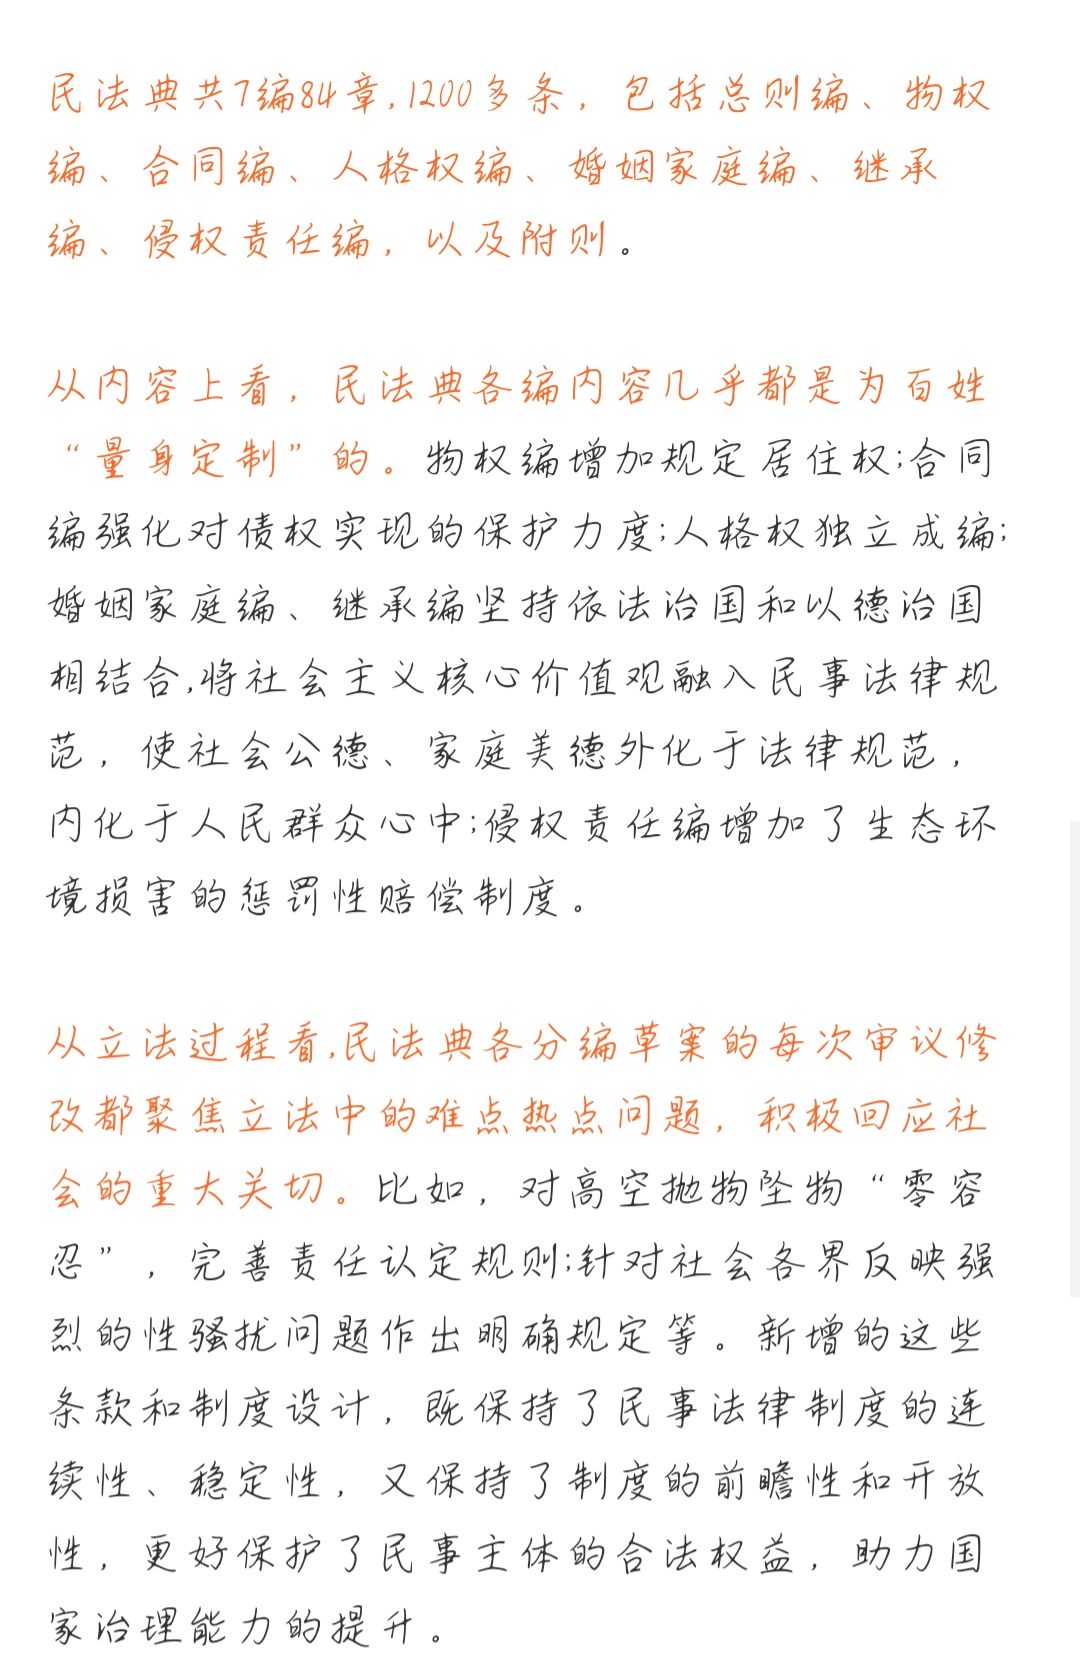 民法典共7编84章,1200多条，包括总则编、物权
编、合同编、人格权编、婚姻家庭编、继承
编、侵权责任编，以及附则。
从内容上看，民法典各编内容几乎都是为百姓
“量身定制”的。物权编增加规定居住权;合同
编强化对债权实现的保护力度;人格权独立成编;
婚姻家庭编、继承编坚持依法治国和以德治国
相结合,将社会主义核心价值观融入民事法律规
范，使社会公德、家庭美德外化于法律规范，
内化于人民群众心中;侵权责任编增加了生态环
境损害的惩罚性赔偿制度。
从立法过程看,民法典各分编草案的每次审议修
改都聚焦立法中的难点热点问题，积极回应社
会的重大关切。比如，对高空抛物坠物“零容
忍”，完善责任认定规则;针对社会各界反映强
烈的性骚扰问题作出明确规定等。新增的这些
条款和制度设计，既保持了民事法律制度的连
续性、稳定性，又保持了制度的前瞻性和开放
性，更好保护了民事主体的合法权益，助力国
家治理能力的提升。